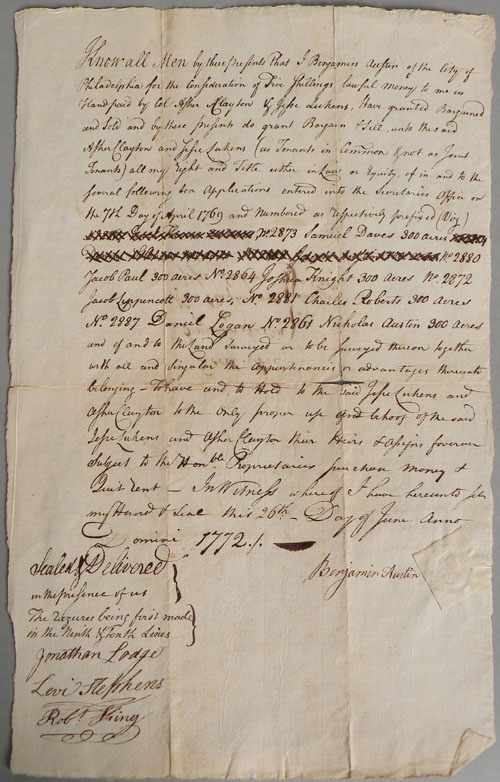 Know all Men by these presents That I Benjamin Austin of the City of
Philadelphia for the Consideration of Five Shillings lawful Money to me in
Hand paid by Col Asher Clayton & Jesse Lukens, Have granted Bargained
and Sold and by these presents do grant Bargain & Sell unto the said
Asher Clayton and Jesse Lukens (as Tenants in Common & not as Joint
Tenants) all my Right and Title either in Law or Equity of in and to the
several following ten Applications entered into the Secretaries Office on
the 7th Day of April 1769 and Numbered as respectively prefixed (Viz)
No 2873 Samuel Davis 300 acres
No 2880
Jacob Paul 300 acres No 2864 Joshua Knight 300 Acres No 2872
Jacob Lippencott 300 acres, No 2881 Charles Roberts 300 Acres
No 2887 Daniel Logan No 2861 Nicholas Austin 300 Acres
and of and to the Land Surveyed or to be Surveyed thereon together
with all and Singular the Appurtenances or advantages thereunto
belonging – To have and to Hold to the said Jesse Lukens and
Asher Clayton to the only proper use and behoof of the said
Jesse Lukens and Asher Clayton their Heirs & Assigns forever
Subject to the Honble Proprietaries purchase Money &
Quit Rent – In Witness whereof I have hereunto set
my Hand & Seal this 26th – Day of June Anno
Domini 1772./.
Sealed & Delivered
in the presence of us
Benjamin Austin
The razures being first made
in the Ninth & Tenth Lines
Jonathan Lodge
Levi Stephens
Robt.